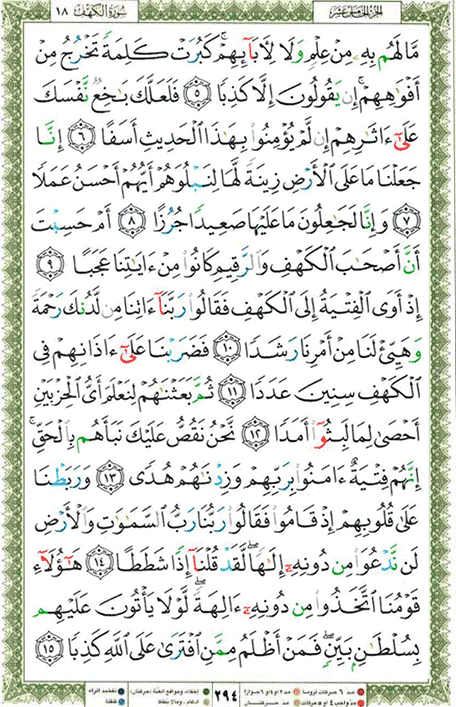 سُورَةُ الكَهْفِ ١٨
الجزء الخامس عشر
مَّا لَهُم بِهِۦ مِنْ عِلْمٍ وَلَا لِءَابَآئِهِمْ ۚ كَبُرَتْ كَلِمَةً تَخْرُجُ مِنْ
أَفْوَٰهِهِمْ ۚ إِن يَقُولُونَ إِلَّا كَذِبًا ٥ فَلَعَلَّكَ بَٰخِعٌ نَّفْسَكَ
عَلَىٰٓ ءَاثَٰرِهِمْ إِن لَّمْ يُؤْمِنُوا۟ بِهَٰذَا ٱلْحَدِيثِ أَسَفًا ٦ إِنَّا
جَعَلْنَا مَا عَلَى ٱلْأَرْضِ زِينَةً لَّهَا لِنَبْلُوَهُمْ أَيُّهُمْ أَحْسَنُ عَمَلًا
٧ وَإِنَّا لَجَٰعِلُونَ مَا عَلَيْهَا صَعِيدًا جُرُزًا ٨ أَمْ حَسِبْتَ
أَنَّ أَصْحَٰبَ ٱلْكَهْفِ وَٱلرَّقِيمِ كَانُوا۟ مِنْ ءَايَٰتِنَا عَجَبًا ٩
إِذْ أَوَى ٱلْفِتْيَةُ إِلَى ٱلْكَهْفِ فَقَالُوا۟ رَبَّنَآ ءَاتِنَا مِن لَّدُنكَ رَحْمَةً
وَهَيِّئْ لَنَا مِنْ أَمْرِنَا رَشَدًا ١٠ فَضَرَبْنَا عَلَىٰٓ ءَاذَانِهِمْ فِى
ٱلْكَهْفِ سِنِينَ عَدَدًا ١١ ثُمَّ بَعَثْنَٰهُمْ لِنَعْلَمَ أَىُّ ٱلْحِزْبَيْنِ
أَحْصَىٰ لِمَا لَبِثُوٓا۟ أَمَدًا ١٢ نَّحْنُ نَقُصُّ عَلَيْكَ نَبَأَهُم بِٱلْحَقِّ ۚ
إِنَّهُمْ فِتْيَةٌ ءَامَنُوا۟ بِرَبِّهِمْ وَزِدْنَٰهُمْ هُدًى ١٣ وَرَبَطْنَا
عَلَىٰ قُلُوبِهِمْ إِذْ قَامُوا۟ فَقَالُوا۟ رَبُّنَا رَبُّ ٱلسَّمَٰوَٰتِ وَٱلْأَرْضِ
لَن نَّدْعُوَا۟ مِن دُونِهِۦٓ إِلَٰهًا ۖ لَّقَدْ قُلْنَآ إِذًا شَطَطًا ١٤ هَٰٓؤُلَآءِ
قَوْمُنَا ٱتَّخَذُوا۟ مِن دُونِهِۦٓ ءَالِهَةً ۖ لَّوْلَا يَأْتُونَ عَلَيْهِم
بِسُلْطَٰنٍۭ بَيِّنٍ ۖ فَمَنْ أَظْلَمُ مِمَّنِ ٱفْتَرَىٰ عَلَى ٱللَّهِ كَذِبًا ١٥
٢٩٤